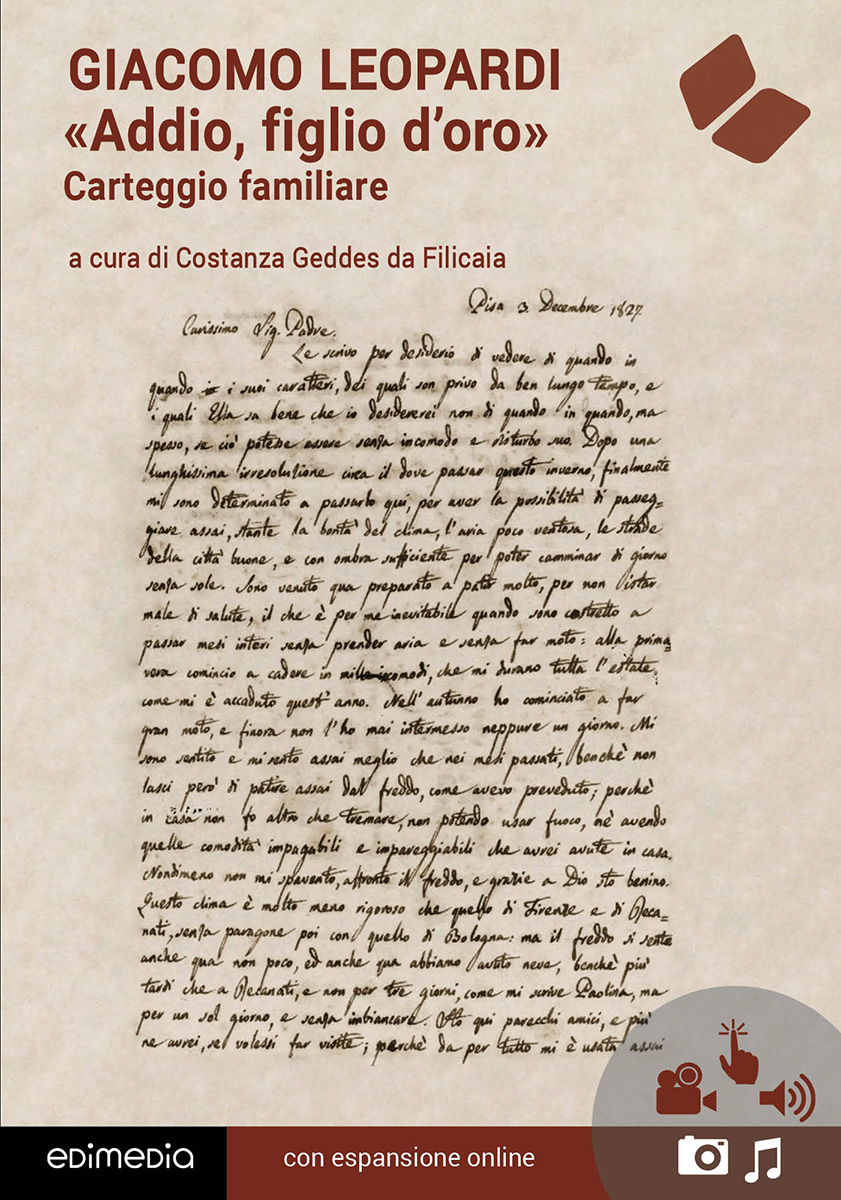 GIACOMO LEOPARDI
«Addio, figlio d’oro»
Carteggio familiare
a cura di Costanza Geddes da Filicaia
Pisa 3. Decembre 1827.
Carissimo Sig. Padre.
Le scrivo per desiderio di vedere di quando in
quando i suoi caratteri, dei quali son privo da ben lungo tempo, e
i quali Ella sa bene che io desidererei non di quando in quando, ma
spesso, se ciò potesse essere senza incomodo e disturbo suo. Dopo una
lunghissima irresoluzione circa il dove passar questo inverno, finalmente
mi sono determinato a passarlo qui, per aver la possibilità di passeg=
giare assai, stante la bontà del clima, l'aria poco ventosa, le strade
della città buone, e con ombra sufficiente per poter camminar di giorno
senza sole. Sono venuto qua preparato a patir molto, per non istar
male di salute, il che è per me inevitabile quando sono costretto a
passar mesi interi senza prender aria e senza far moto: alla prima=
vera comincio a cadere in mille incomodi, che mi durano tutta l'estate,
come mi è accaduto quest'anno. Nell'autunno ho cominciato a far
gran moto, e finora non l'ho mai intermesso neppure un giorno. Mi
sono sentito e mi sento assai meglio che nei mesi passati, benchè non
lasci però di patire assai dal freddo, come avevo preveduto; perchè
in casa non fo altro che tremare, non potendo usar fuoco, nè avendo
quelle comodità impagabili e impareggiabili che avrei avute in casa.
Nondimeno non mi spavento, affronto il freddo, e grazie a Dio sto benino.
Questo clima è molto meno rigoroso che quello di Firenze e di Reca=
nati, senza paragone poi con quello di Bologna: ma il freddo si sente
anche qua non poco, ed anche qua abbiamo avuto neve, benchè più
tardi che a Recanati, e non per tre giorni, come mi scrive Paolina, ma
per un sol giorno, e senza imbiancare. Ho qui parecchi amici, e più
ne avrei, se volessi far visite; perchè da per tutto mi è usata assai
edimedia
con espansione online